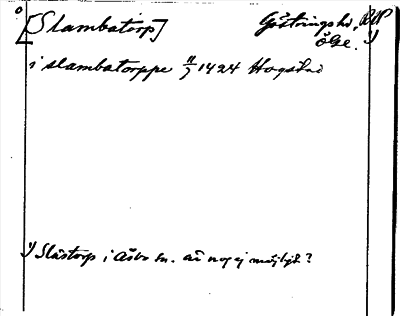 [Slambatorp] Göstringshd, RAP
ÖGe. 1)
i slambatorppe 11/7 1424 Hogstad
1) Slåstorp i Åsbo sn. är nog ej möjligt?